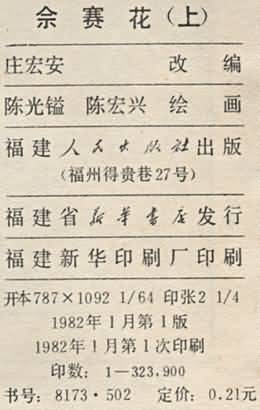 佘赛花(上)
庄宏安 改编
陈光镒 陈宏兴 绘画
福建人民出版社出版
(福州得贵巷27号)
福建省新华书店发行
福建新华印刷厂印刷
开本787×1092 1/64 印张2 1/4
1982年1月第1版
1982年1月第1次印刷
印数: 1—323,900
书号: 8173·502 定价: 0.21元